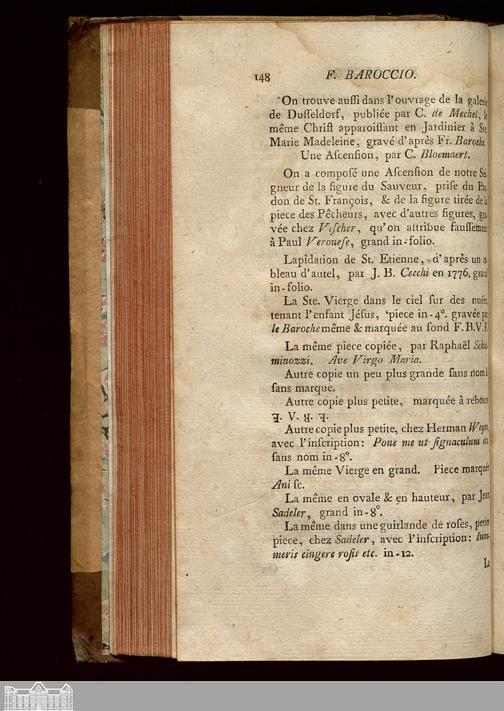 148 F. BAROCCIO.
On trouve auſſi dans l'ouvrage de la galerie
de Duſſeldorf, publiée par C. de Mechel, le
même Chriſt apparoiſſant en Jardinier à Ste
Marie Madeleine, gravé d'après Fr. Baroche.
Une Aſcenſion, par C. Bloemaert.
On a compoſé une Aſcenſion de notre Sei
gneur de la figure du Sauveur, priſe du Par
don de St. François, & de la figure tirée de la
piece des Pêcheurs, avec d'autres figures, gra
vée chez Viſcher, qu'on attribue fauſſement
à Paul Veroneſe, grand in-folio.
Lapidation de St. Etienne, d'après un ta
bleau d'autel, par J. B. Cecchi en 1776, grand
in-folio.
La Ste. Vierge dans le ciel ſur des nuées,
tenant l'enfant Jéſus, piece in-4°. gravée par
le Baroche même & marquée au fond F.B.V.F.
La même piece copiée, par Raphaël
minozzi. Ave Virgo Maria.
Autre copie un peu plus grande ſans nom &
ſans marque.
Autre copie plus petite, marquée à rebours
Autre copie plus petite, chez Herman
avec l'inſcription: Pone me ut ſignaculum etc
ſans nom in-8°.
La même Vierge en grand. Piece marquée
Ani ſc.
La même en ovale & en hauteur, par Jean
Sadeler, grand in-8°.
La même dans une guirlande de roſes, petite
piece, chez Sadeler, avec l'inſcription:
meris cingere roſis etc. in-12.